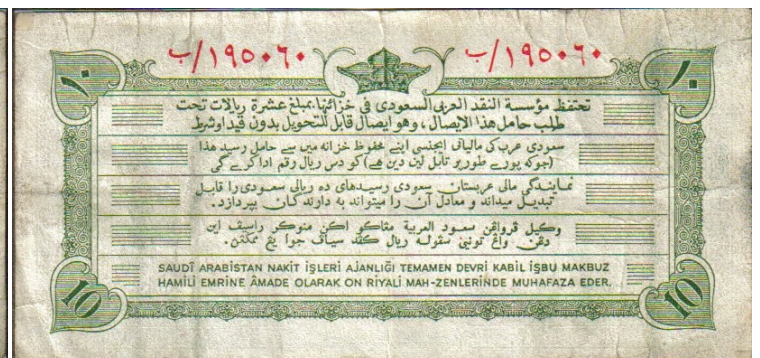 ب/١٩٥٠٦٠ ب/١٩٥٠٦٠
١٠ ١٠
تحتفظ مؤسسة النقد العربى السعودى فى خزائنها، بمبلغ عشرة ريالات تحت
طلب حامل هذا الايصال، وهو ايصال قابل للتحويل بدون قيد اوشرط
سعودى عرب کی مالیاتی ایجنسی اپنے محفوظ خزانه میں سے حامل رسید هذا
(جوکه پورے طور پر قابل لین دین هے) کو دس ریال رقم ادا کرے گی
نمایندگی مالی عربستان سعودی رسیدهای ده ریالی سعودی را قابل
تبدیل میداند و معادل آن را میتواند به دارندکان بپردازد.
وكيل قرواڠن سعود العربية
SAUDÎ ARABİSTAN NAKİT İŞLERİ AJANLIĞI TEMAMEN DEVRİ KABİL İŞBU MAKBUZ
HAMİLİ EMRİNE ÂMADE OLARAK ON RİYALİ MAH-ZENLERİNDE MUHAFAZA EDER.
10 10